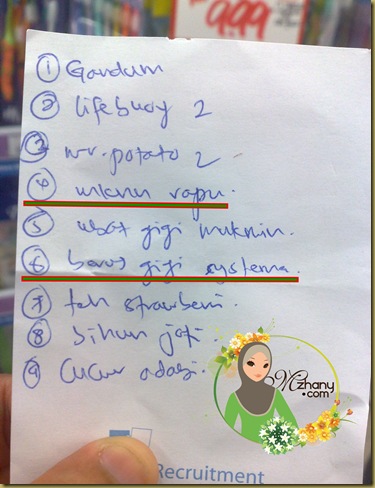 9.99
① Gandum
② lifebuoy 2
③ mr. potato 2
④ rapu.
⑤ ubat gigi mukmin.
⑥ berus gigi systema.
⑦ teh strawberi.
⑧ bihun jati.
⑨ Cucur adabi.
Mzhany
.com
Recruitment